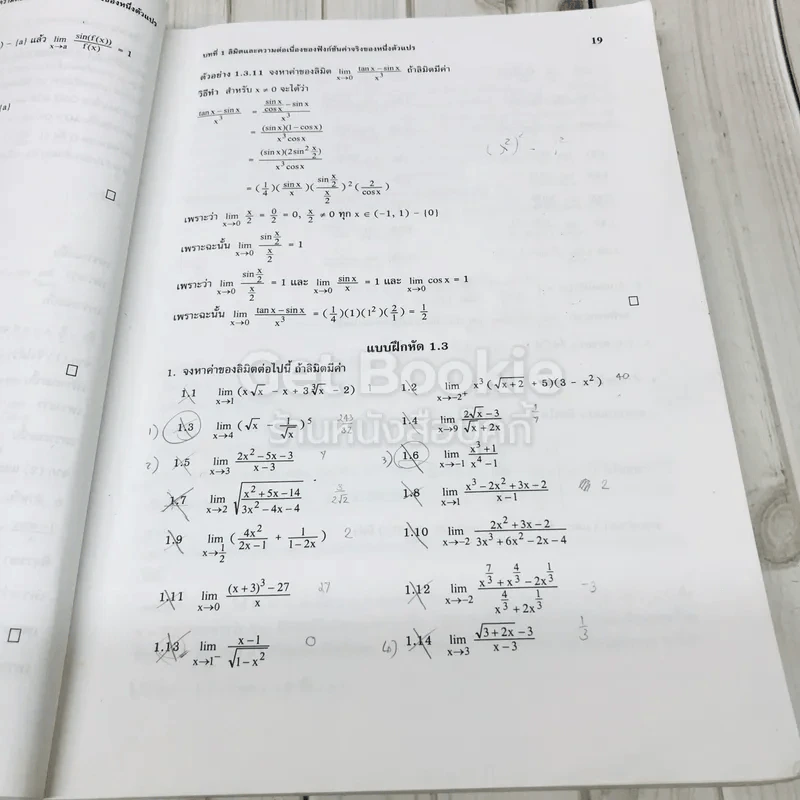 องหนึ่งตัวแปร
) – {a} แล้ว lim x→a sin(f(x))/f(x) = 1
{a}
บทที่ 1 ลิมิตและความต่อเนื่องของฟังก์ชันค่าจริงของหนึ่งตัวแปร 19
ตัวอย่าง 1.3.11 จงหาค่าของลิมิต lim x→0 (tan x – sin x)/x³ ถ้าลิมิตมีค่า
วิธีทำ สำหรับ x ≠ 0 จะได้ว่า
(tan x – sin x)/x³ = (sin x/cos x – sin x)/x³
= (sin x)(1 – cos x)/(x³ cos x)
= (sin x)(2sin² x/2)/(x³ cos x)
= (1/4)(sin x/x)(sin x/2 / x/2)²(2/cos x)
เพราะว่า lim x→0 x/2 = 0/2 = 0, x/2 ≠ 0 ทุก x ∈ (-1, 1) – {0}
เพราะฉะนั้น lim x→0 (sin x/2)/(x/2) = 1
เพราะว่า lim x→0 (sin x/2)/(x/2) = 1 และ lim x→0 sin x/x = 1 และ lim x→0 cos x = 1
เพราะฉะนั้น lim x→0 (tan x – sin x)/x³ = (1/4)(1)(1²)(2/1) = 1/2
แบบฝึกหัด 1.3
1. จงหาค่าของลิมิตต่อไปนี้ ถ้าลิมิตมีค่า
1.1 lim x→1 (x√x – x + 3∛x – 2) 1 1.2 lim x→-2⁺ x³(√(x+2) + 5)(3 – x²) 40
1) 1.3 lim x→4 (√x – 1/√x)⁵ 243/32 1.4 lim x→9 (2√x – 3)/√(x + 2x) 3/7
2) 1.5 lim x→3 (2x² – 5x – 3)/(x – 3) 7 3) 1.6 lim x→-1 (x³ + 1)/(x⁴ – 1)
1.7 lim x→2 √((x² + 5x – 14)/(3x² – 4x – 4)) 3/2√2 1.8 lim x→1 (x³ – 2x² + 3x – 2)/(x – 1) 2
1.9 lim x→1/2 (4x²/(2x – 1) + 1/(1 – 2x)) 2 1.10 lim x→-2 (2x² + 3x – 2)/(3x³ + 6x² – 2x – 4)
1.11 lim x→0 ((x + 3)³ – 27)/x 27 1.12 lim x→-2 (x^(7/3) + x^(4/3) – 2x^(1/3))/(x^(4/3) + 2x^(1/3)) -3
1.13 lim x→1⁻ (x – 1)/√(1 – x²) 0 4) 1.14 lim x→3 (√(3 + 2x) – 3)/(x – 3) 1/3
Get Bookie
ร้านหนังสือบุคกี้